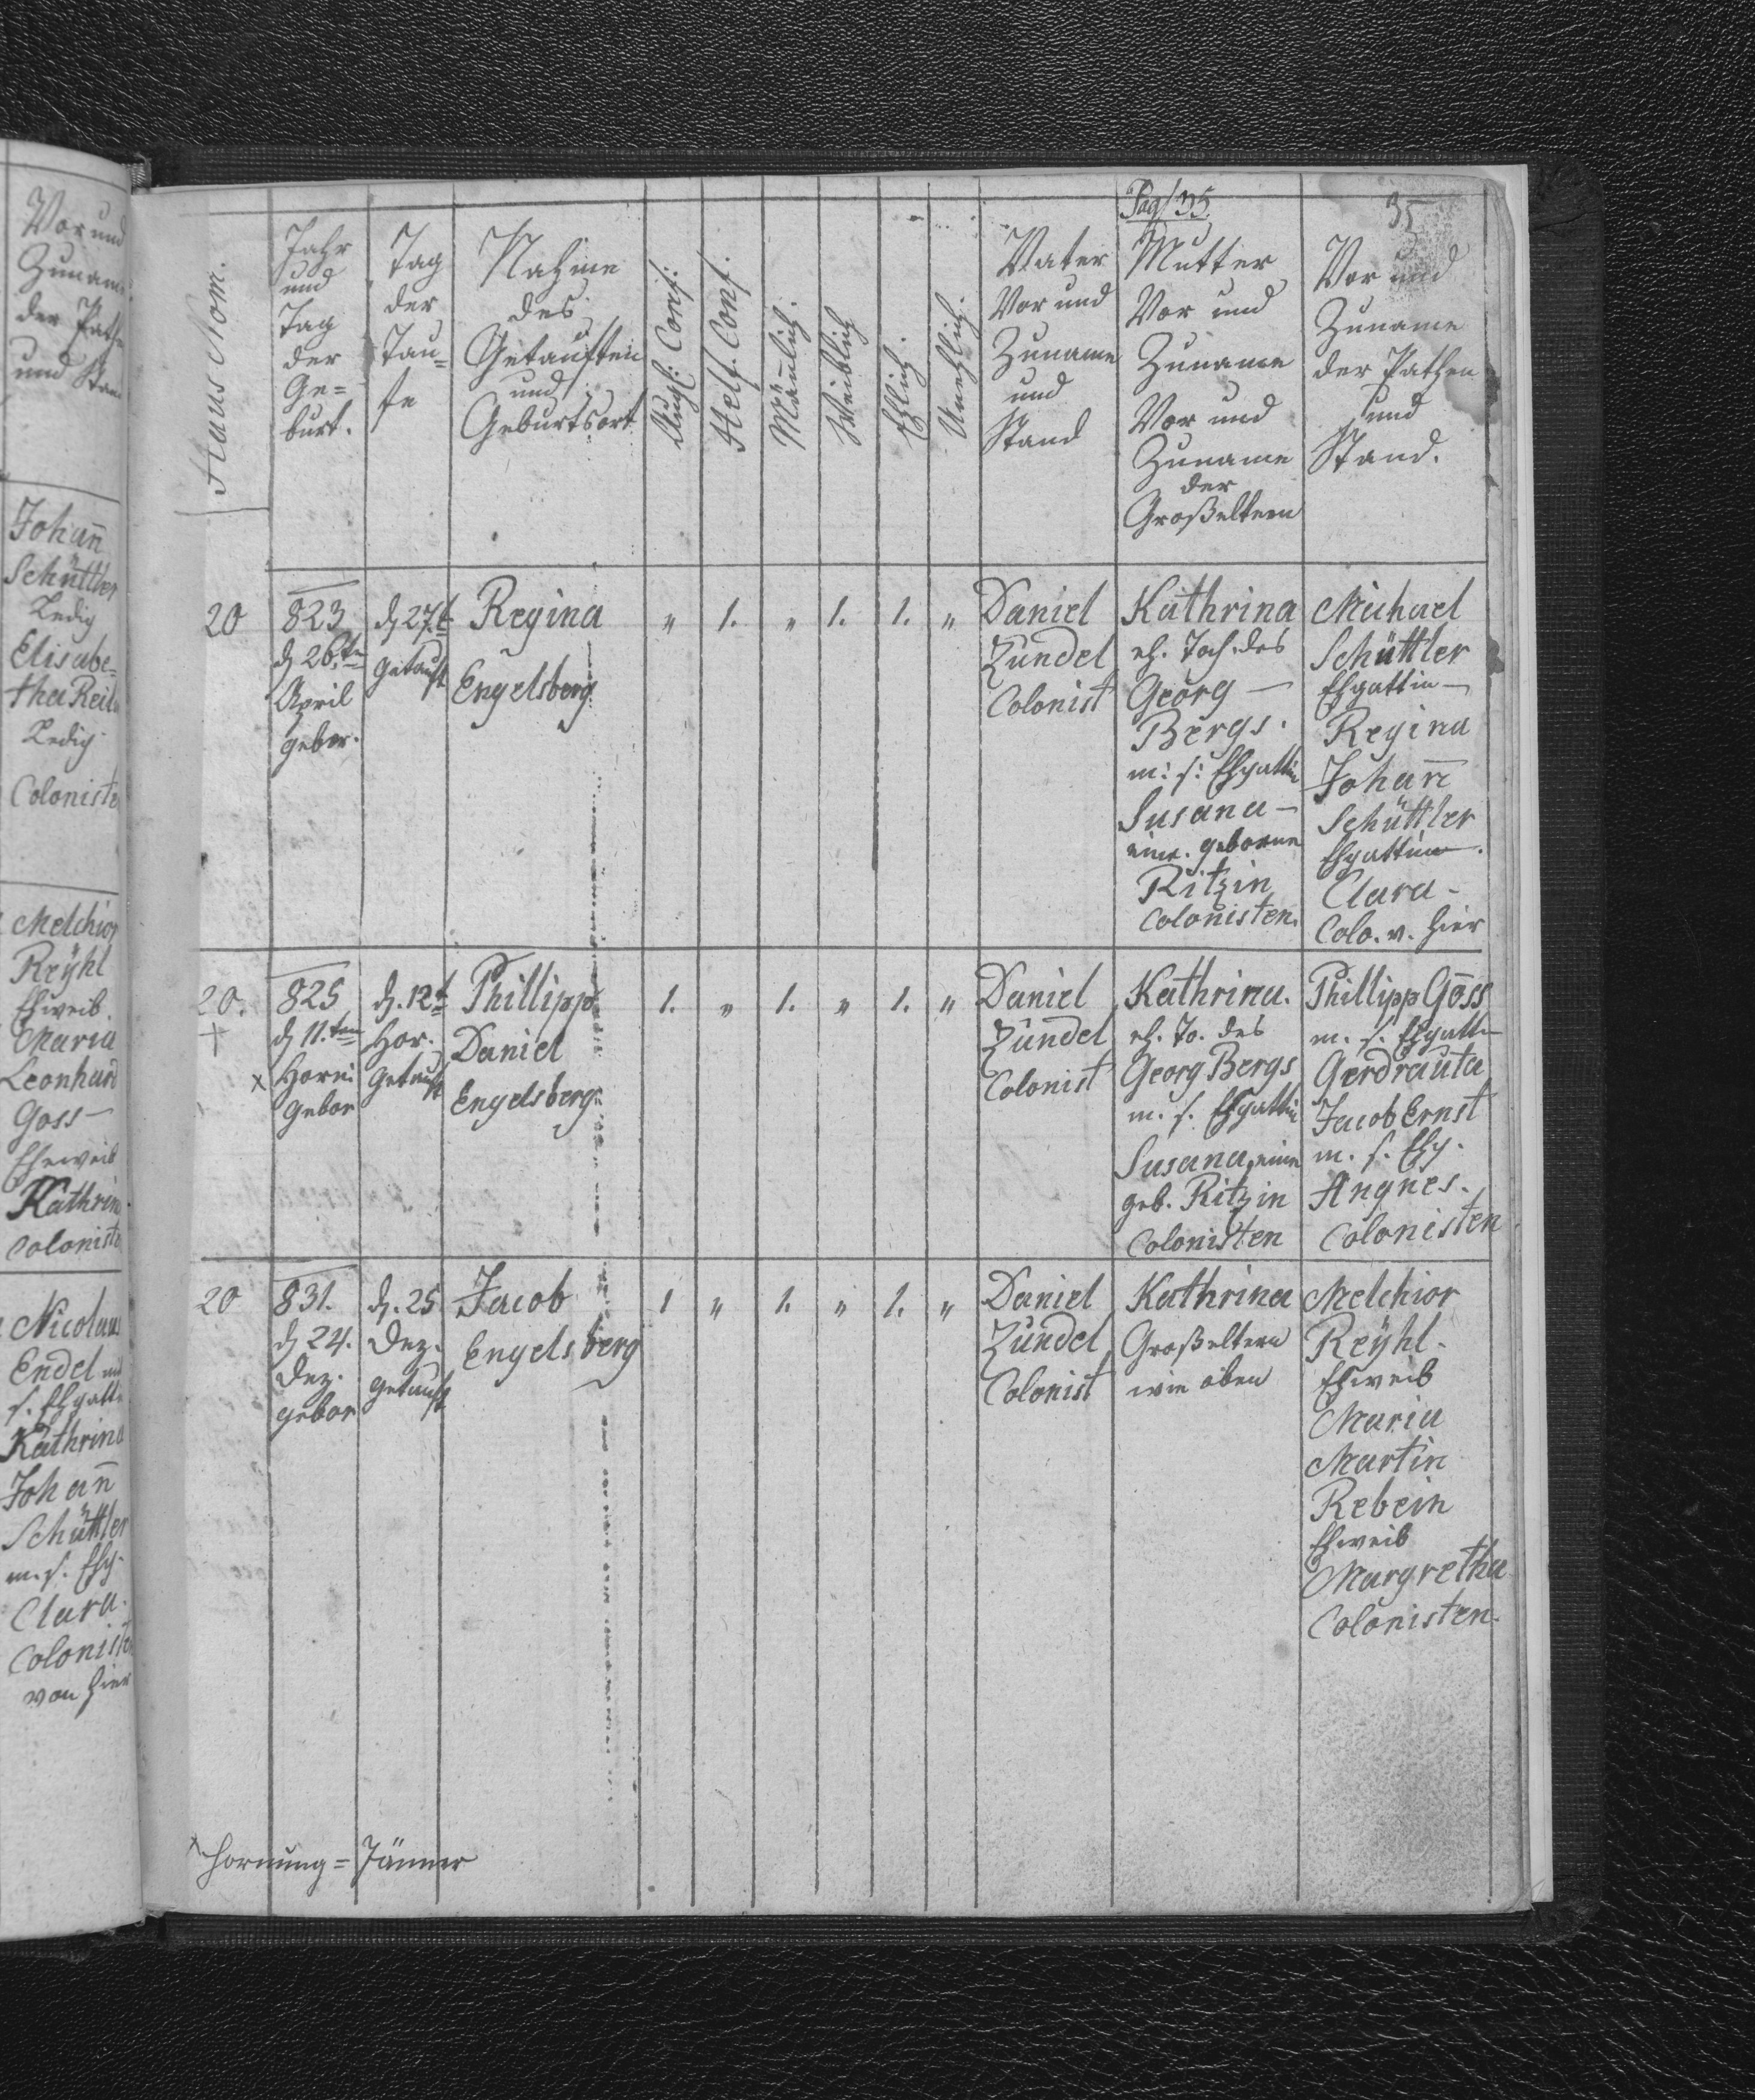 Vor und
Zuname
der Pathe
und Stand
Johan̄
Schüttler
Ledig
Elisabe=
tha Reil
Ledig
Coloniste
Melchior
Reÿhl
Ehweib.
Maria
Leonhard
Goss —
Eheweib
Kathrin
Coloniste
Nicolaus
Endel mit
s. Ehgatti
Kathrina
Johan̄
Schüttler
m. s. Ehg.
Clara.
Coloniste
von hier
Pag/35.
35
Haus Nom.
Jahr
und
Tag
der
Ge=
burt.
Tag
der
Tau=
fe
Nahme
des
Getauften
und
Geburtsort
Augs: Conf:
Helf. Conf.
Män̄lich.
Weiblich
Ehlich.
Unehlich.
Vater
Vor und
Zuname
und
Stand
Mutter
Vor und
Zuname
Vor und
Zuname
der
Großeltern
Vor und
Zuname
der Pathen
und
Stand.
20
823
d 26.ten
April
gebor.
d 27.t
getauft
Regina
Engelsberg
" 1. " 1. 1. "
Daniel
Zündel
Colonist
Kathrina
eh. Toch. des
Georg —
Bergs.
m: s: Ehgattin
Susana —
eine. geborne
Ritzin
Colonisten.
Michael
Schüttler
Ehgattin —
Regina
Johan̄
Schüttler
Ehgattin.
Clara -
Colo. v. hier
20.
+
825
d 11.ten
x Horni
gebor
d. 12t
Hor.
getauft
Phillipp
Daniel
Engelsberg
1. " 1. " 1. "
Daniel
Zündel
Colonist
Kathrina.
eh. To. des
Georg Bergs
m. s. Ehgattin
Susana, eine
geb. Ritzin
Colonisten
Phillipp Gōss
m. s. Ehgatti
Gerdrauta
Jacob Ernst
m. s. Ehg.
Angnes.
Colonisten
20
831.
d 24.
Dez.
gebor
d. 25
Dez.
getauft
Jacob
Engelsberg
1 " 1. " 1. "
Daniel
Zündel
Colonist
Kathrina
Großeltern
wie oben
Melchior
Reÿhl.
Ehweib
Maria
Martin
Rebein
Ehweib
Margretha
Colonisten.
x Hornung = Jänner